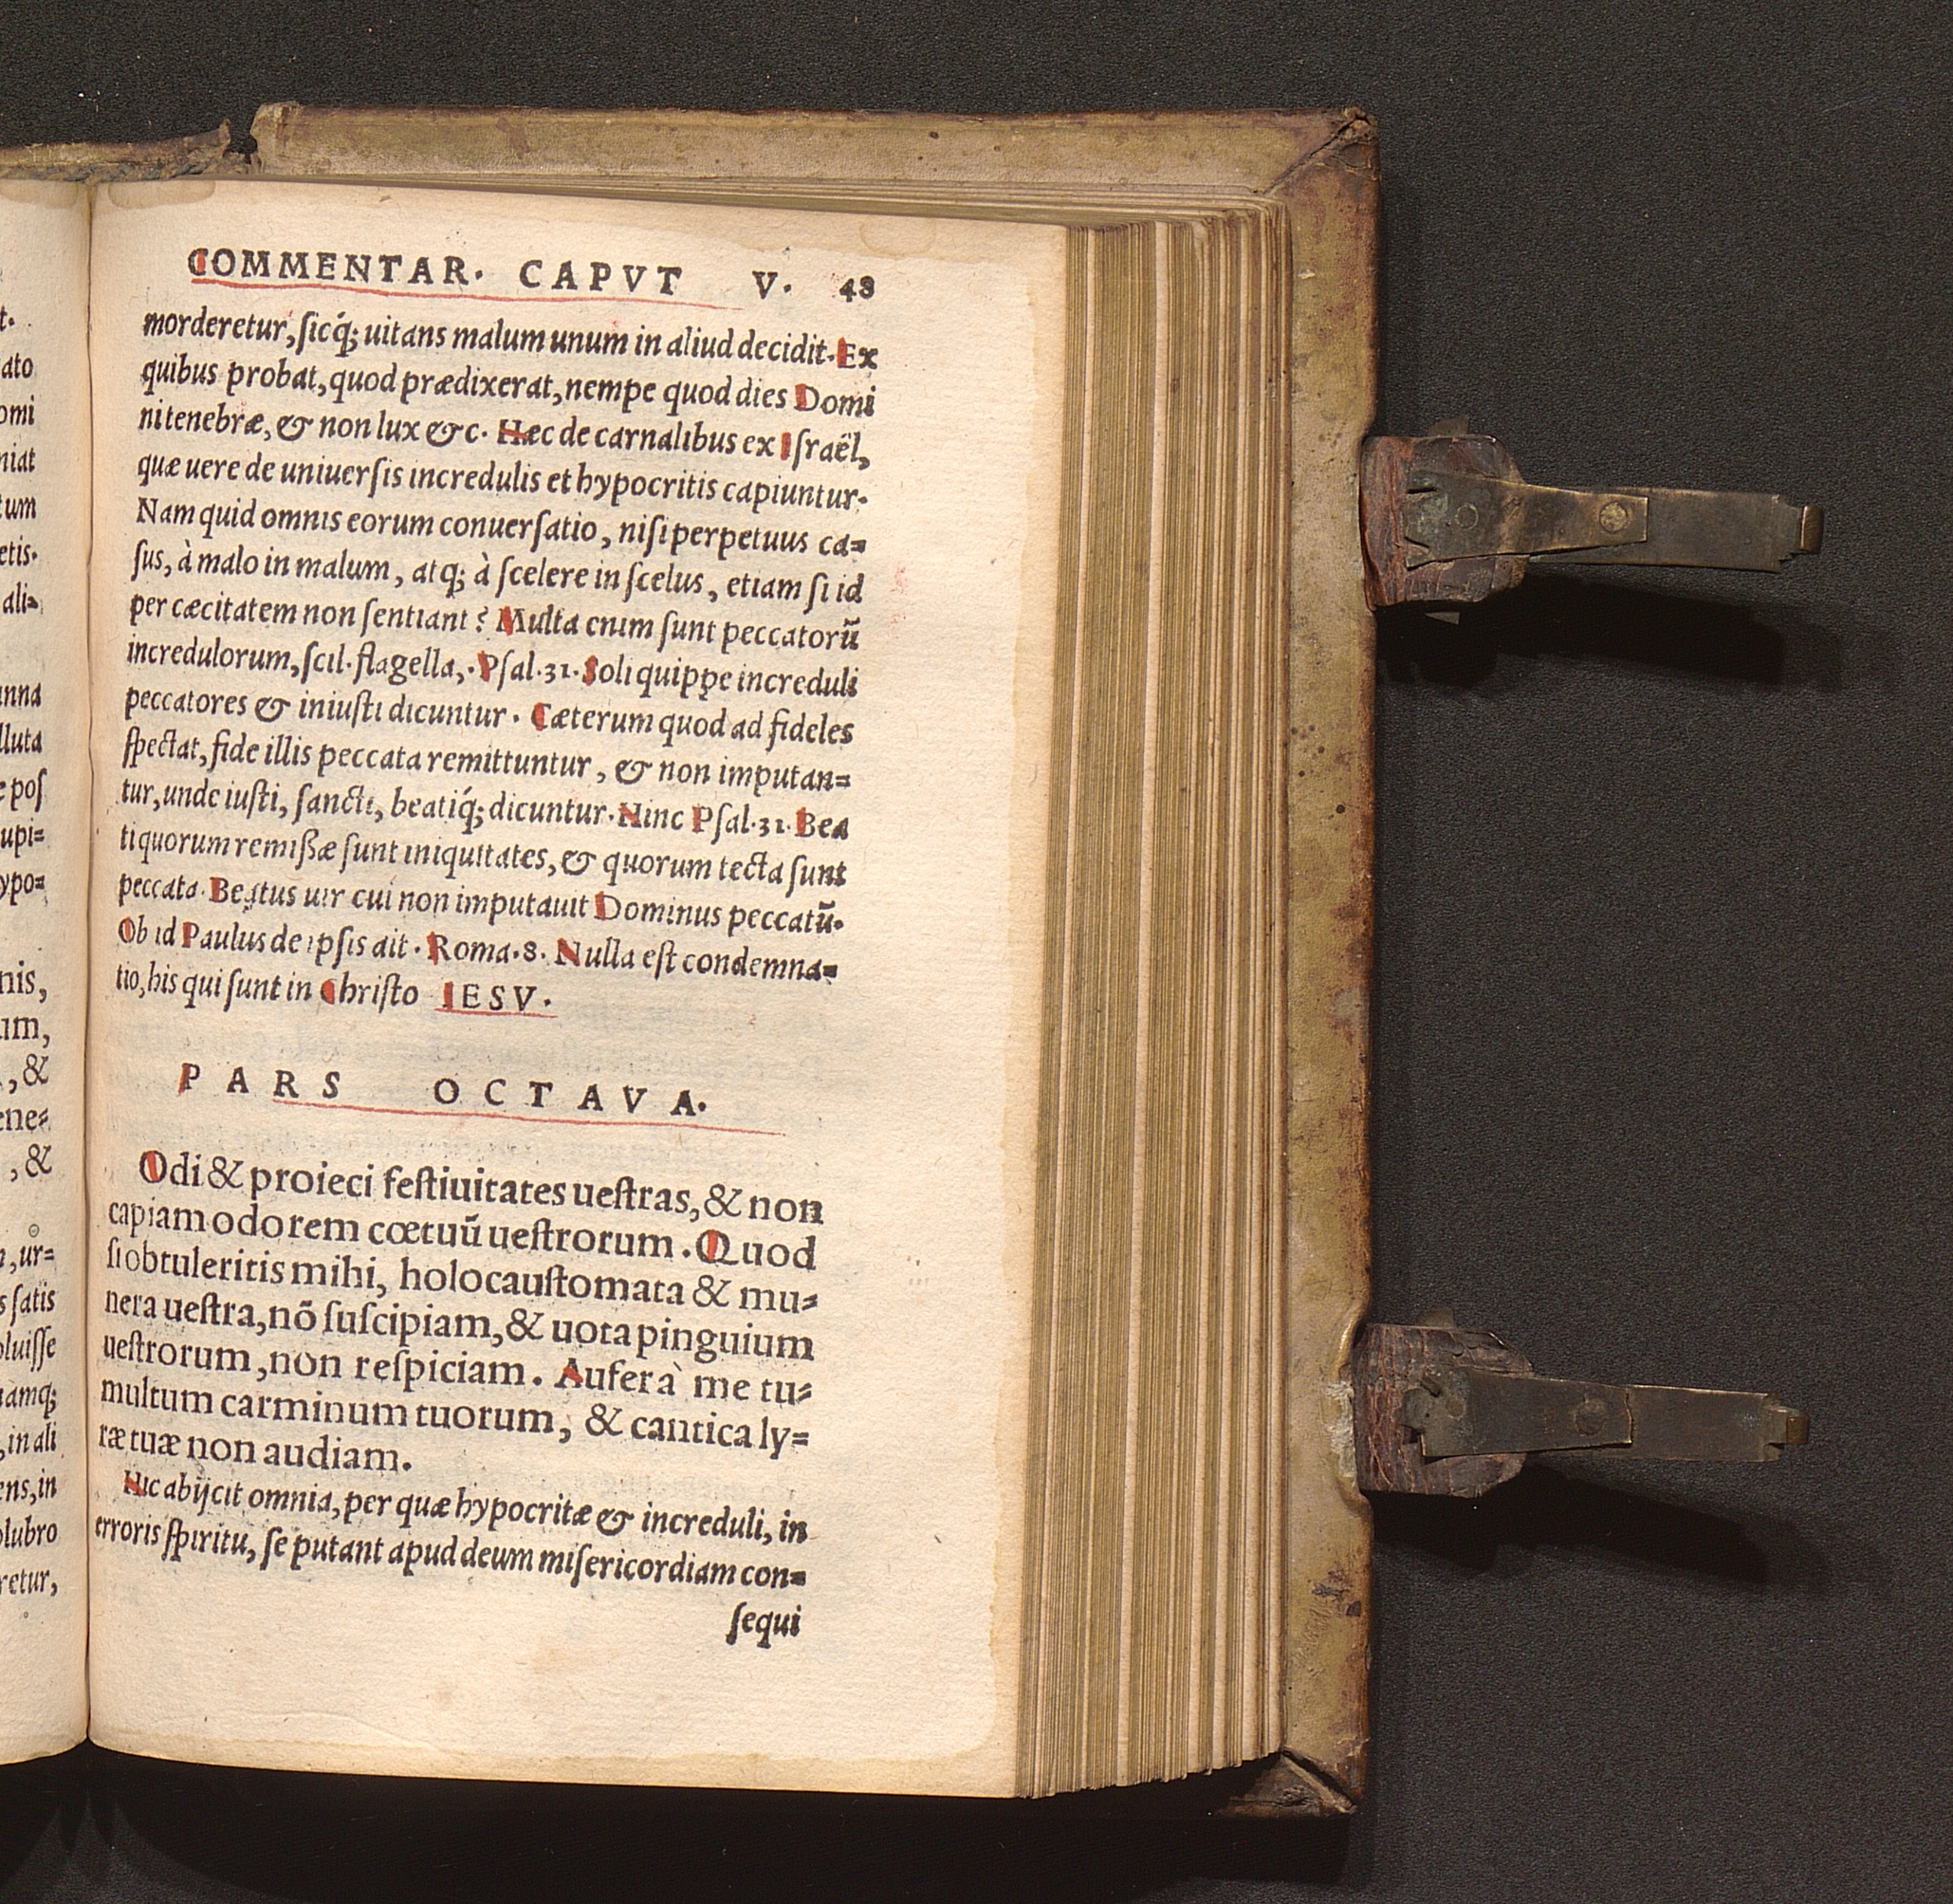 t.
ato
omi
niat
tum
etis.
ali=
anna
lluta
e pos
upi=
ypo=
nis,
um,
, &
ene=
, &
n, ur=
s satis
oluisse
namq;
, in ali
ens, in
olubro
retur,
COMMENTAR. CAPVT V. 48
morderetur, sicq́; uitans malum unum in aliud decidit. Ex
quibus probat, quod prædixerat, nempe quod dies Domi
ni tenebræ, & non lux &c. Hæc de carnalibus ex Israël,
quæ uere de uniuersis incredulis et hypocritis capiuntur.
Nam quid omnis eorum conuersatio, nisi perpetuus ca=
sus, à malo in malum, atq; à scelere in scelus, etiam si id
per cæcitatem non sentiant? Multa enim sunt peccatorū
incredulorum, scil. flagella,. Psal. 31. Soli quippe increduli
peccatores & iniusti dicuntur. Cæterum quod ad fideles
spectat, fide illis peccata remittuntur, & non imputan=
tur, unde iusti, sancti, beatiq́; dicuntur. Hinc Psal. 31. Bea
ti quorum remissæ sunt iniquitates, & quorum tecta sunt
peccata. Beatus uir cui non imputauit Dominus peccatū.
Ob id Paulus de ipsis ait. Roma. 8. Nulla est condemna=
tio, his qui sunt in Christo IESV.
PARS OCTAVA.
Odi & proieci festiuitates uestras, & non
capiam odorem cœtuū uestrorum. Quod
si obtuleritis mihi, holocaustomata & mu=
nera uestra, nō suscipiam, & uota pinguium
uestrorum, non respiciam. Aufer à me tu=
multum carminum tuorum, & cantica ly=
ræ tuæ non audiam.
Hic abijcit omnia, per quæ hypocritæ & increduli, in
erroris spiritu, se putant apud deum misericordiam con=
sequi